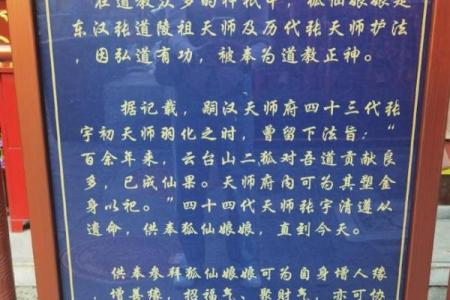 在道教众多的神祇中，狐仙娘娘是
东汉张道陵祖天师及历代张天师护法，
因弘道有功，被奉为道教正神。
据记载，嗣汉天师府四十三代张
宇初天师羽化之时，曾留下法旨：“
百余年来，云台山二狐对吾道贡献良
多，已成仙果。天师府内可为其塑金
身以祀。”四十四代天师张宇清遵从
遗命，供奉狐仙娘娘，直到今天。
供奉参拜狐仙娘娘可为自身增人缘
、增善缘，招福气、聚财气，亦可